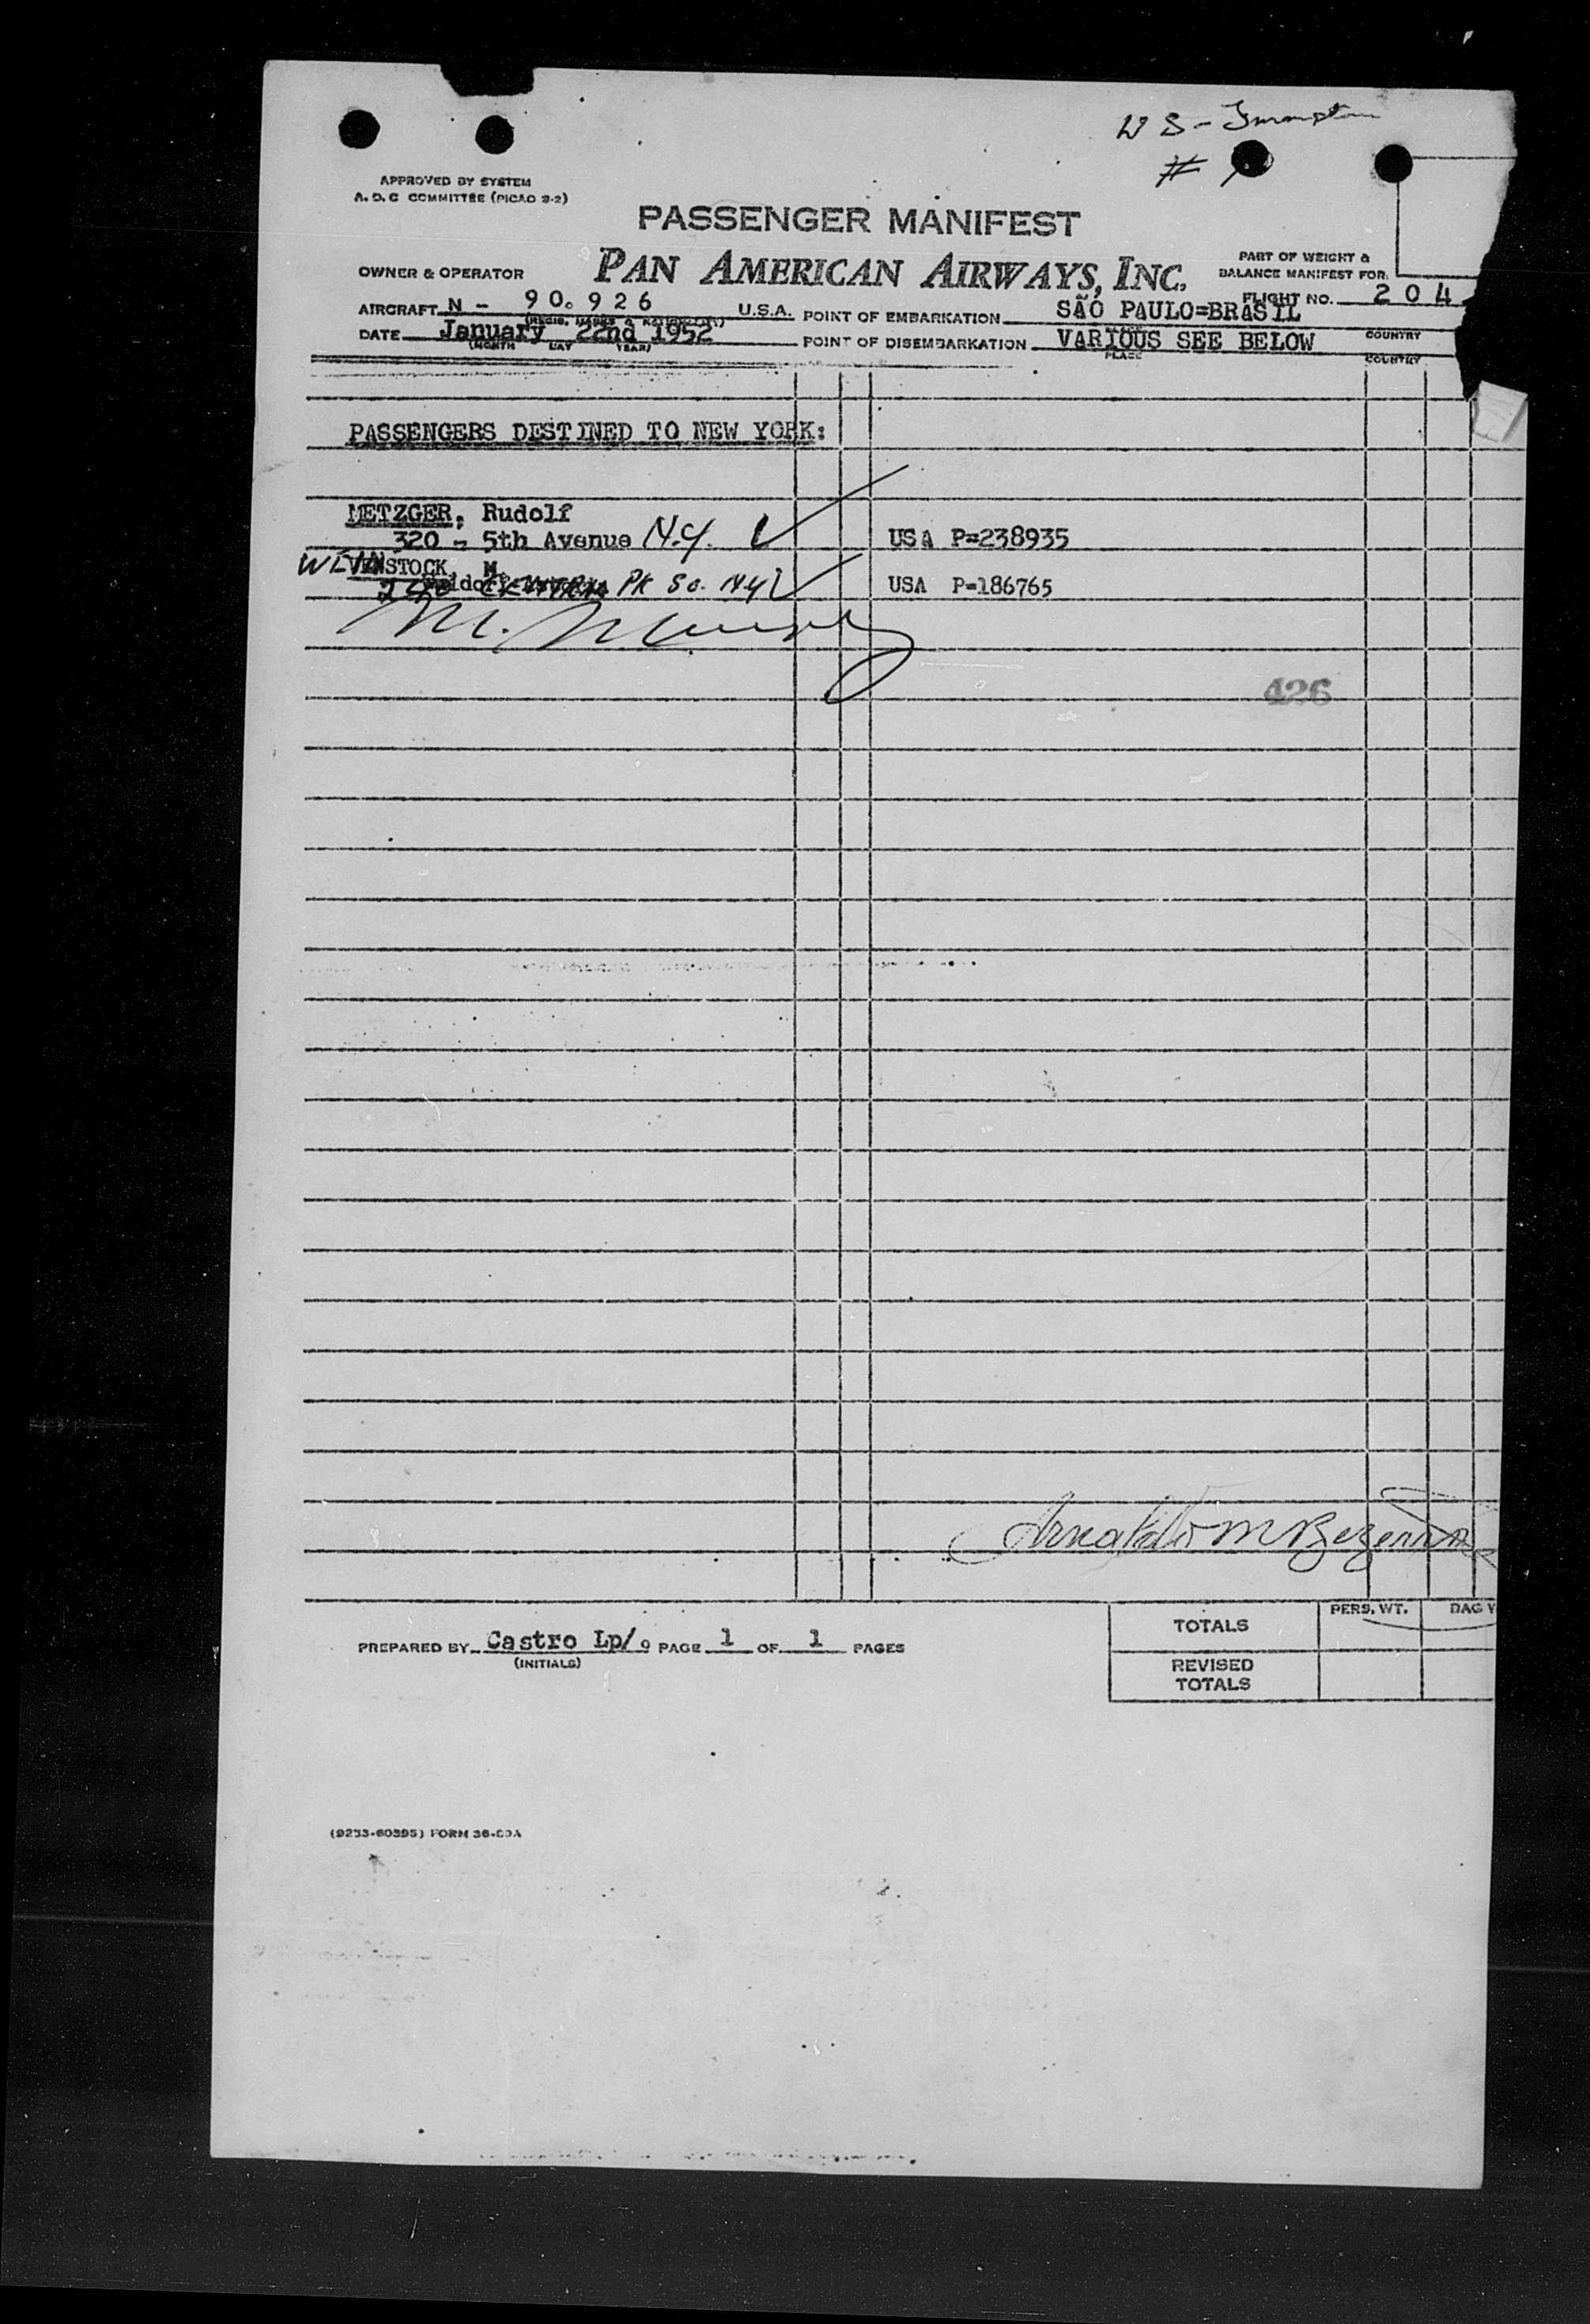 W S -
#
APPROVED BY SYSTEM
A. D. C COMMITTEE (PICAO 9-2)
PASSENGER MANIFEST
OWNER & OPERATOR PAN AMERICAN AIRWAYS, INC. PART OF WEIGHT & BALANCE MANIFEST FOR:
AIRCRAFT N - 90. 926 U.S.A. POINT OF EMBARKATION SÃO PAULO=BRASIL FLIGHT NO. 204
DATE January 22nd 1952 POINT OF DISEMBARKATION VARIOUS SEE BELOW COUNTRY
(MONTH DAY YEAR) PLACE COUNTRY
PASSENGERS DESTINED TO NEW YORK:
METZGER, Rudolf
320 - 5th Avenue N.Y. USA P=238935
WEINSTOCK, M
CENTRAL PK SO. NY USA P=186765
M.
426
Arnaldo M Bezerra
PREPARED BY Castro Lp/o PAGE 1 OF 1 PAGES
(INITIALS)
TOTALS PERS. WT.
REVISED TOTALS
(9233-60395) FORM 36-